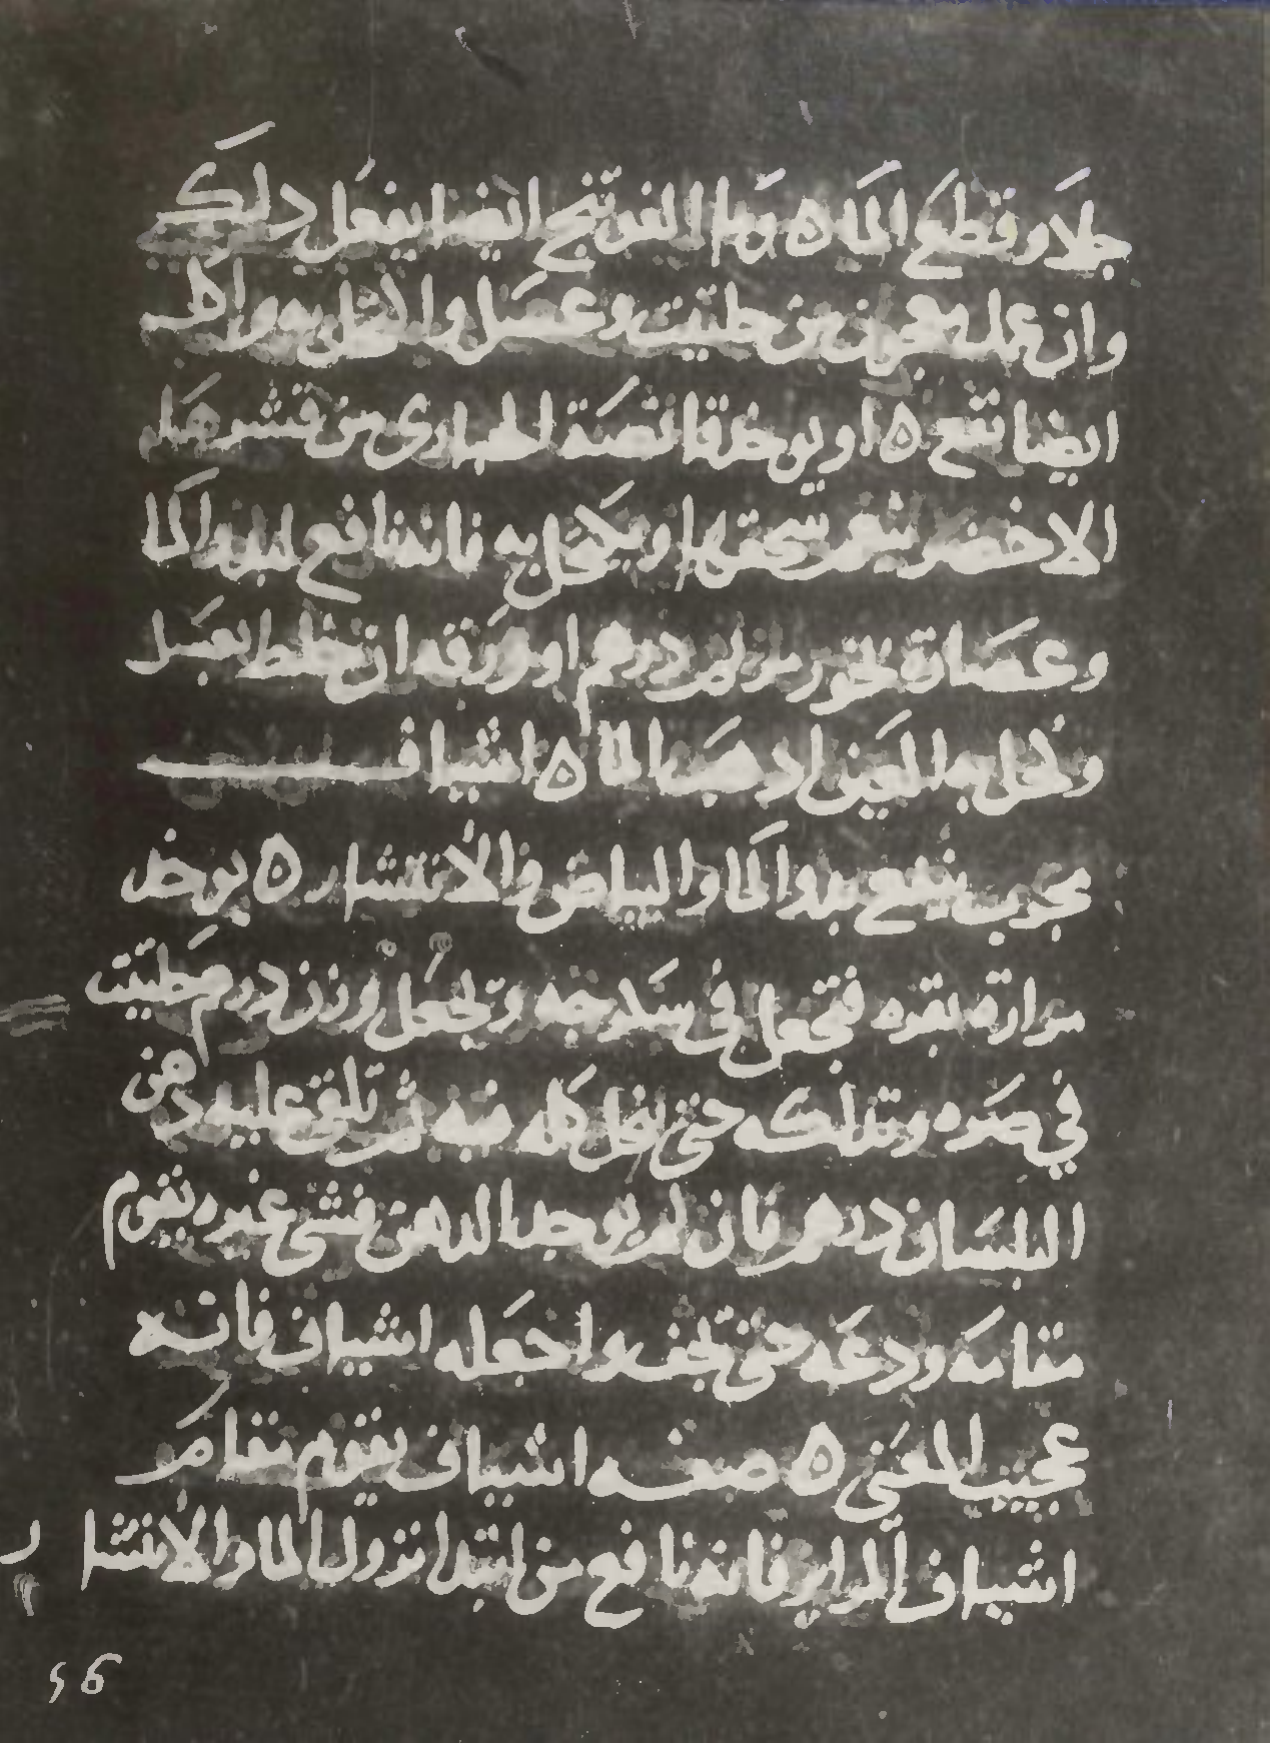 جلا وقطع الما ٥ وما الغوتنج ايضا يفعل ذلك
وان عمل معجون من حلتيت وعسل واكتحل به واكل
ايضا نفع ٥ او يوخذ قانصة الحبارى من قشرها
الاخضر ينعم سحقها ويكحل به فانه نافع لبدو الما
وعصارة بخور مريم درهم او ورقه ان خلط بعسل
وكحل به العين اذهب الما ٥ اشياف
مجرب ينفع بدو الما والبياض والانتشار ٥ يوخذ
مرارة بقره فتجعل في سكرجه وتجعل وزن درهم حلتيت
في صره وتدلكه حتى ينحل كله فيه ثم تلقي عليه دهن
البلسان درهم فان لم يوجد الدهن فشي غيره يقوم
مقامه ودعه حتى يجف واجعله اشياف فانه
عجيب المعنى ٥ صفه اشياف يقوم مقام
اشياف المراير فانه نافع من ابتدا نزول الما والانتشار